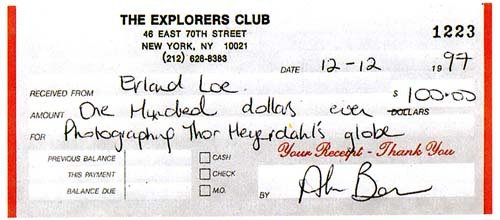 THE EXPLORERS CLUB
46 EAST 70TH STREET
NEW YORK, NY 10021
(212) 628-8383
1223
DATE 12-12 1997
RECEIVED FROM Erland Loe
AMOUNT One Hundred dollars even $100.00 DOLLARS
FOR Photographing Thor Heyerdahl's globe
Your Receipt - Thank You
PREVIOUS BALANCE CASH
THIS PAYMENT CHECK
BALANCE DUE M.O.
BY